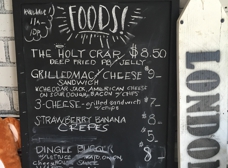 AVAILABLE!
11am-
10p
FOODS!
THE HOLY CRAP $8.50
DEEP FRIED PB/JELLY
GRILLED MAC/CHEESE $9-
SANDWICH
CHEDDAR JACK, AMERICAN CHEESE
ON SOURDOUGH, BACON & CHIPS
3-CHEESE-grilled sandwich $7-
w/ CHIPS
STRAWBERRY BANANA $8
CREPES
5-
DINGLE BURGER $8
w/LETTUCE TOMATO ONION
SAUCE
LONDO